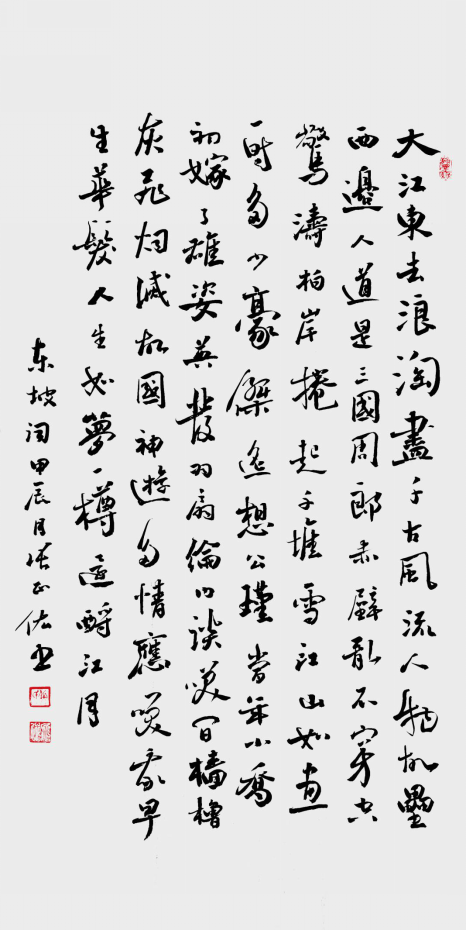 大江東去浪淘盡千古風流人物故壘
西邊人道是三國周郎赤壁亂石穿空
驚濤拍岸捲起千堆雪江山如畫
一時多少豪傑遙想公瑾當年小喬
初嫁了雄姿英發羽扇綸巾談笑間檣櫓
灰飛烟滅故國神遊多情應笑我早
生華髮人生如夢一樽還酹江月
东坡词甲辰月张正佐书